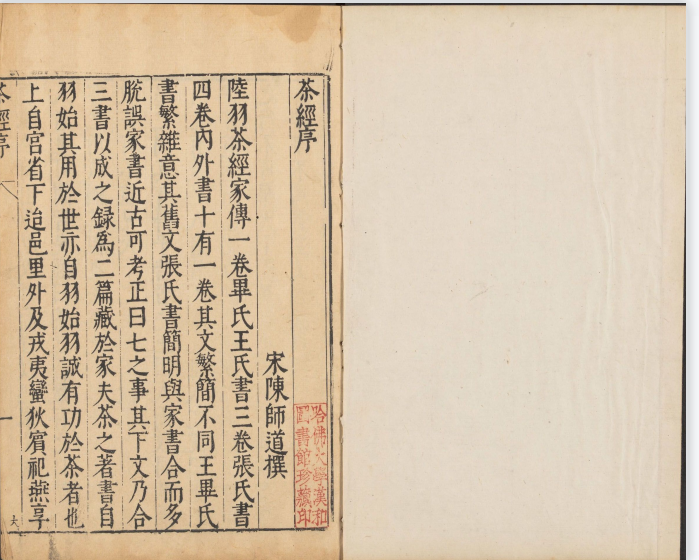 茶經序
宋陳師道撰
陸羽茶經家傳一卷畢氏王氏書三卷張氏書
四卷內外書十有一卷其文繁簡不同王畢氏
書繁雜意其舊文張氏書簡明與家書合而多
脫誤家書近古可考正曰七之事其下文乃合
三書以成之録為二篇藏於家夫茶之著書自
羽始其用於世亦自羽始羽誠有功於茶者也
上自宮省下迨邑里外及戎夷蠻狄賓祀燕享
茶經序
一
哈佛大學漢和
圖書館珍藏印